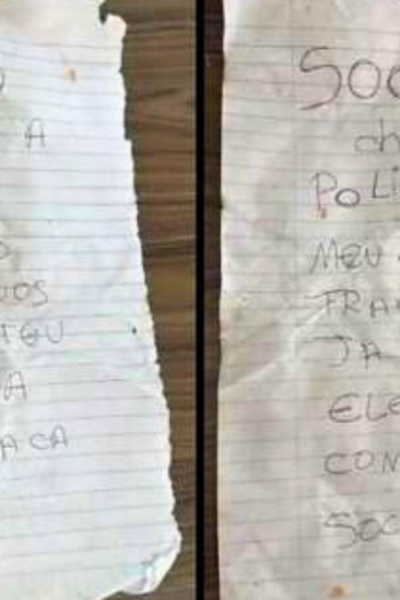 A
UOS
A
ACA
SOC
ch
POLI
MEU
FRA
JA
ELE
COM
SOC